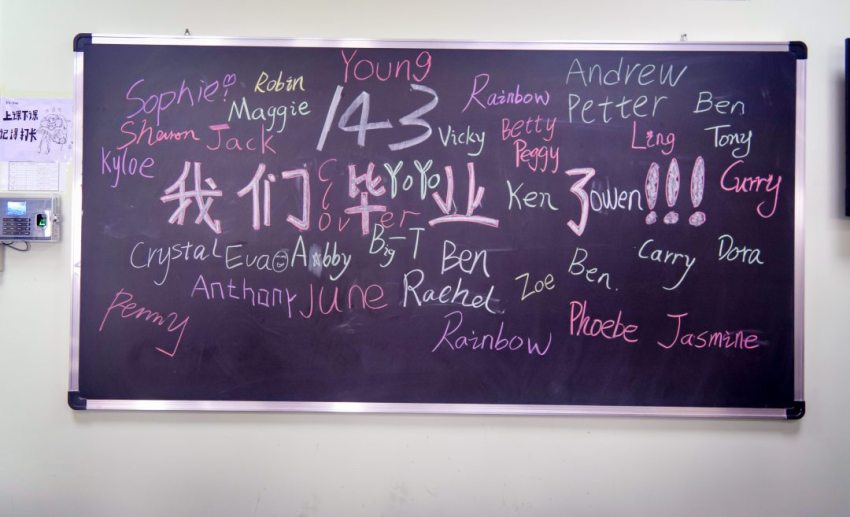 Young
Andrew
Sophie
Robin
Rainbow
143
Petter
Ben
Maggie
Sharon
Jack
Vicky
Betty
Ling
Tony
Peggy
上课下课
记得打卡
Kyloe
我们毕业了!!!
Clover
YoYo
Ken
owen
Curry
Crystal
Eva
Abby
Big-T
Ben
Ben.
Carry
Dora
Anthony
June
Rachel
Zoe
Penny
Rainbow
Phoebe
Jasmine